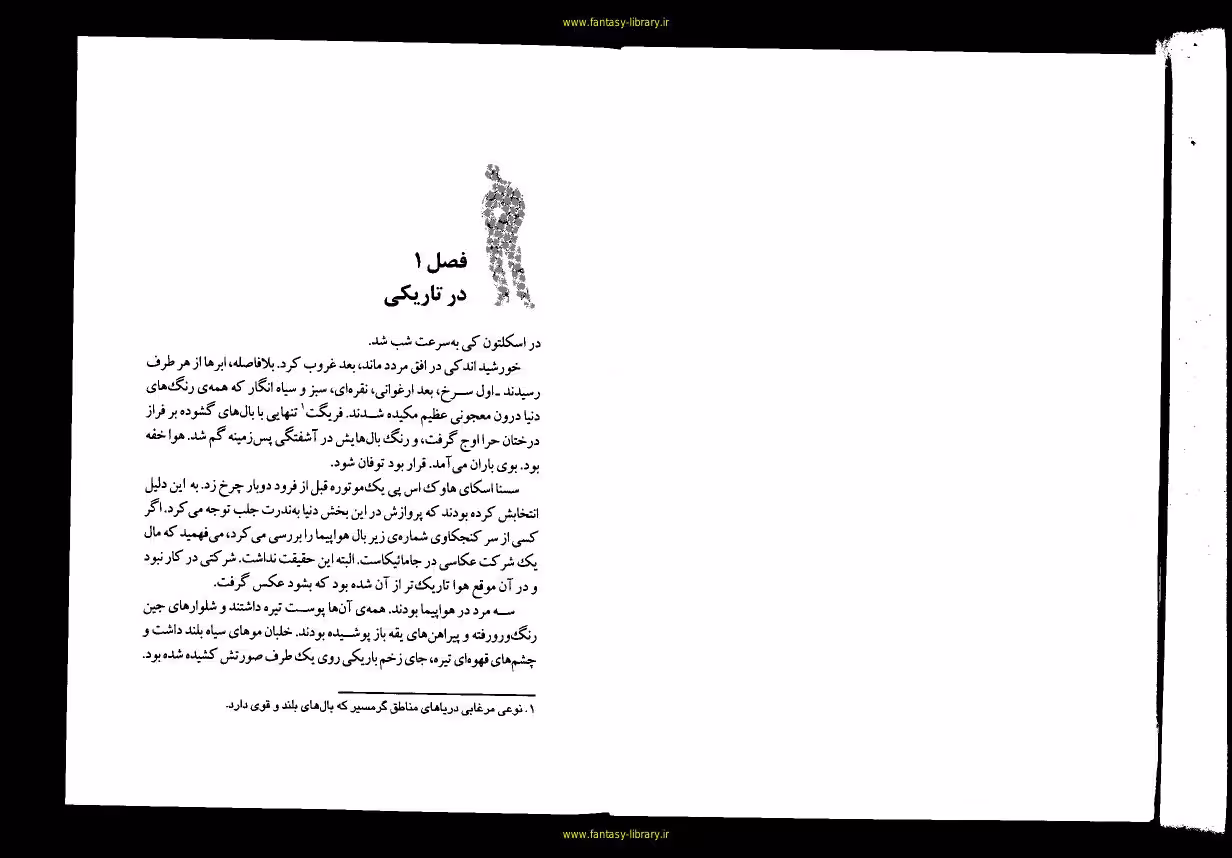 www.fantasy-library.ir
فصل ۱
در تاریکی
در اسکلتون کی به‌سرعت شب شد.
خورشید اندکی در افق مردد ماند، بعد غروب کرد. بلافاصله، ابرها از هر طرف
رسیدند ـ اول سـرخ، بعد ارغوانی، نقره‌ای، سبز و سیاه انگار که همه‌ی رنگ‌های
دنیا درون معجونی عظیم مکیده شـدند. فریگت۱ تنهایی با بال‌های گشوده بر فراز
درختان حرا اوج گرفت، و رنگ بال‌هایش در آشفتگی پس‌زمینه گم شد. هوا خفه
بود. بوی باران می‌آمد. قرار بود توفان شود.
سسنا اسکای هاوک اس پی یک‌موتوره قبل از فرود دوبار چرخ زد. به این دلیل
انتخابش کرده بودند که پروازش در این بخش دنیا به‌ندرت جلب توجه می‌کرد. اگر
کسی از سر کنجکاوی شماره‌ی زیر بال هواپیما را بررسی می‌کرد، می‌فهمید که مال
یک شرکت عکاسی در جامائیکاست. البته این حقیقت نداشت. شرکتی در کار نبود
و در آن موقع هوا تاریک‌تر از آن شده بود که بشود عکس گرفت.
سـه مرد در هواپیما بودند. همه‌ی آن‌ها پوسـت تیره داشتند و شلوارهای جین
رنگ‌ورورفته و پیراهن‌های یقه باز پوشـیده بودند. خلبان موهای سیاه بلند داشت و
چشم‌های قهوه‌ای تیره، جای زخم باریکی روی یک طرف صورتش کشیده شده بود.
۱. نوعی مرغابی دریاهای مناطق گرمسیر که بال‌های بلند و قوی دارد.
www.fantasy-library.ir